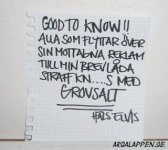 GOOD TO KNOW!!
ALLA SOM FLYTTAR ÖVER
SIN MOTTAGNA REKLAM
TILL MIN BREVLÅDA
STRAFFKN....S MED
GROVSALT
HÄLS ELVIS
ARGALAPPEN.SE